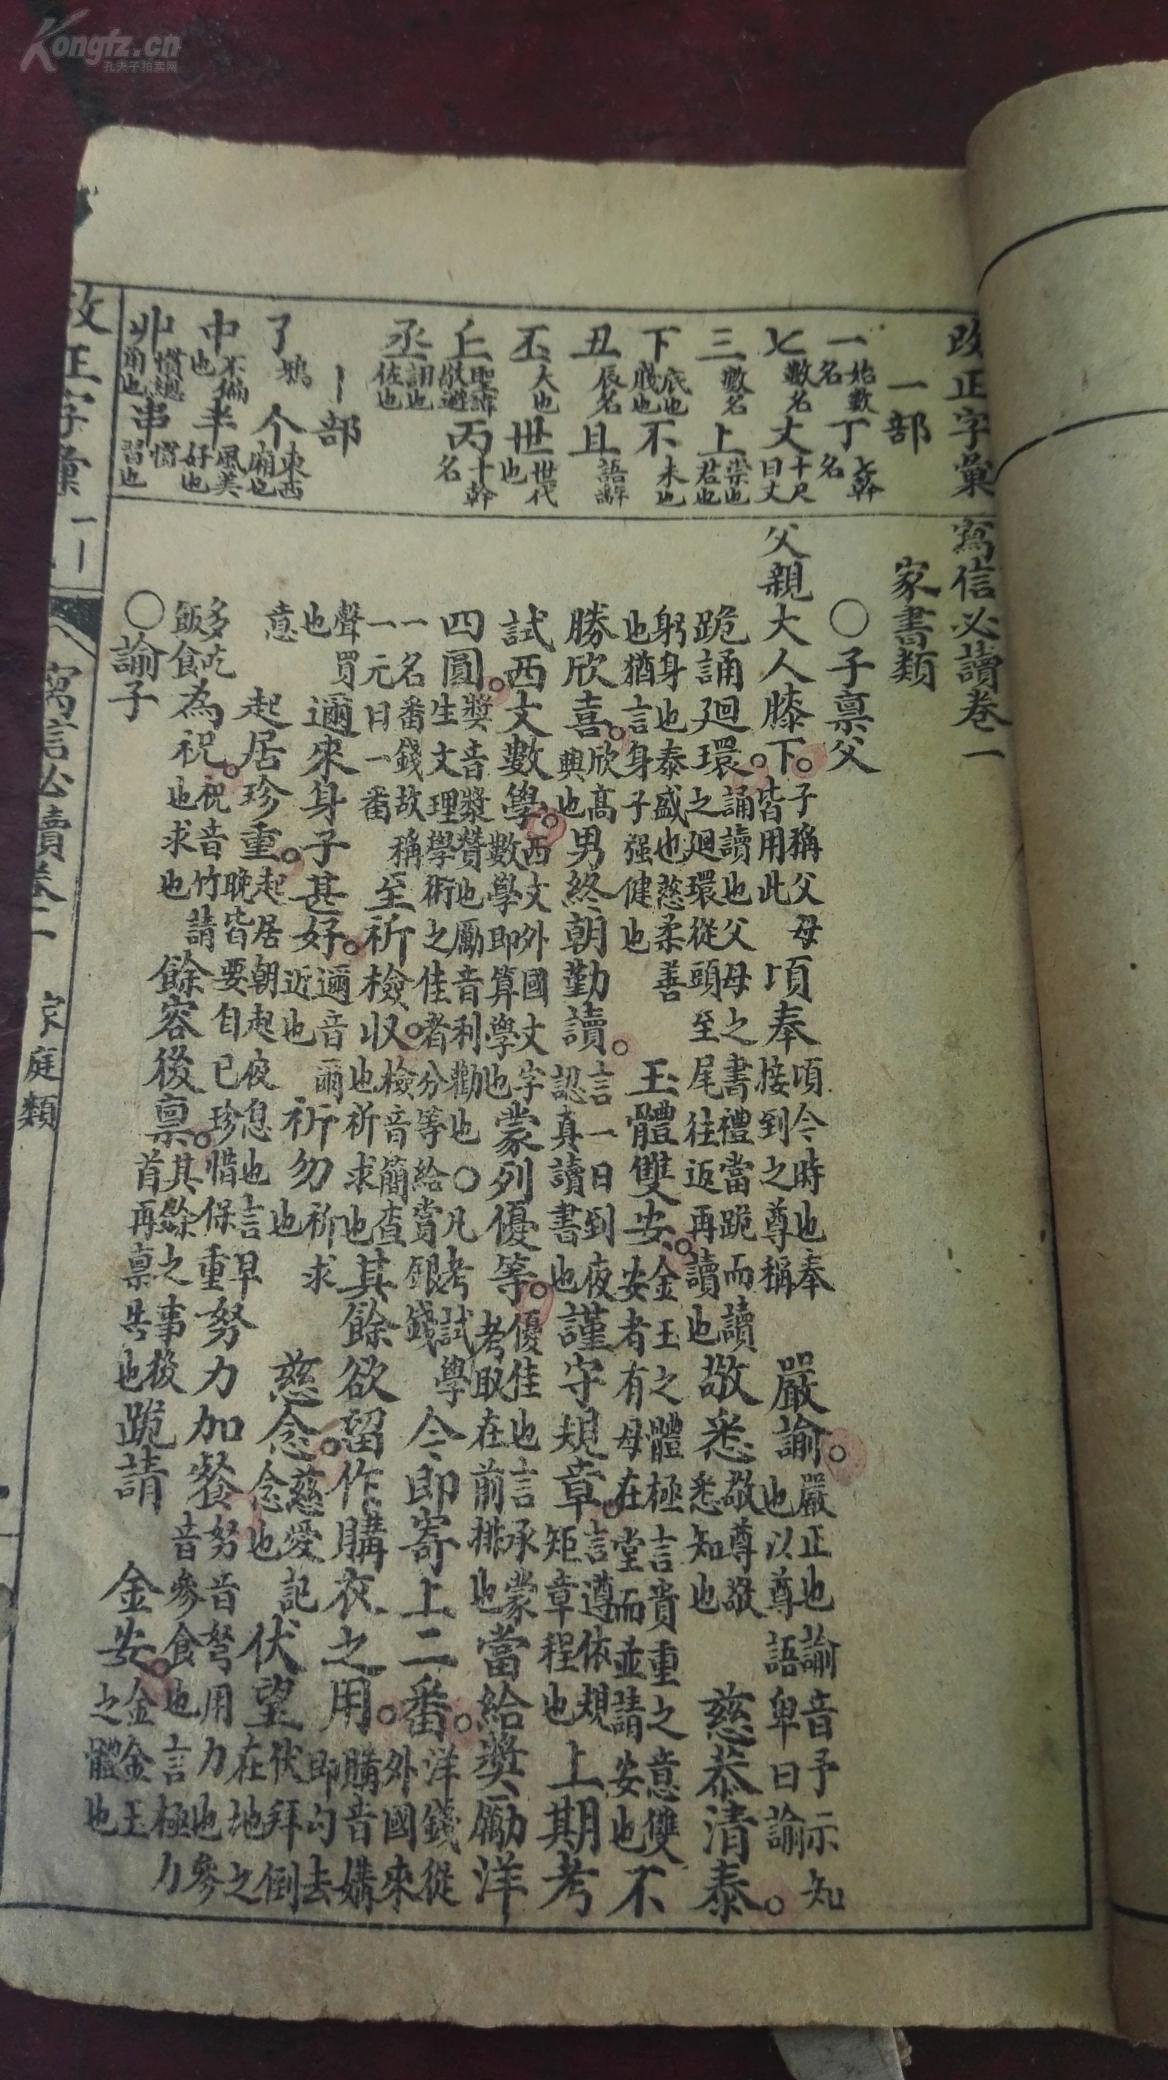 Kongfz.cn
孔夫子拍卖网
改正字彙
一部
一 始數名 丁 名
七 數名 丈 十尺曰丈
三 數名 上 崇也君也
下 底也賤也 不 未也
丑 辰名 且 語辭
丕 大也 世 世代也
丘 聖諱敬避 丙 十幹名
丞 佐也
丨部
了 个 東西廂也
中 不偏也 丰 風美好也
丱 串 慣習也
寫信必讀卷一
家書類
〇子禀父
父親大人膝下。子稱父母皆用此 頃奉頃今時也奉接到之尊稱 嚴諭。嚴正也諭音予示知也以尊語卑曰諭
跪誦廻環。誦讀也父母之書禮當跪而讀之廻環從頭至尾往返再讀也 敬悉敬尊敬悉知也 慈恭清泰。
躬身也泰盛也慈柔善也猶言身子强健也 玉體雙安。金玉之體極言貴重之意雙安者有母在堂而並請安也 不
勝欣喜。欣高興也 男終朝勤讀。言一日到夜認真讀書也 謹守規章。言遵依規矩章程也 上期考
試西文數學。西文外國文字數學即算學也 蒙列優等。優佳也言承蒙考取在前排也 當給獎勵洋
四圓。獎音槳贊也勵音利勸也〇凡考試學生文理學術之佳者分等給賞銀錢 今即寄上二番。洋錢從外國來
一名番錢故稱一元曰一番 至祈檢收。檢音簡查也祈求也 其餘欲留作購衣之用。購音媾即勾去
聲買也 邇來身子甚好。邇音爾近也 祈勿祈求也 慈念。慈愛記念也 伏望伏拜倒在地之
意 起居珍重。起居朝起夜息也言早晚皆要自己珍惜保重 努力加餐努音弩用力也參音參食也言極力
多吃飯食 為祝。祝音竹請也求也 餘容後禀。其餘之事後首再禀告也 跪請 金安。金金玉之體也
〇諭子
改正字彙 一丨
寫信必讀卷一 家庭類